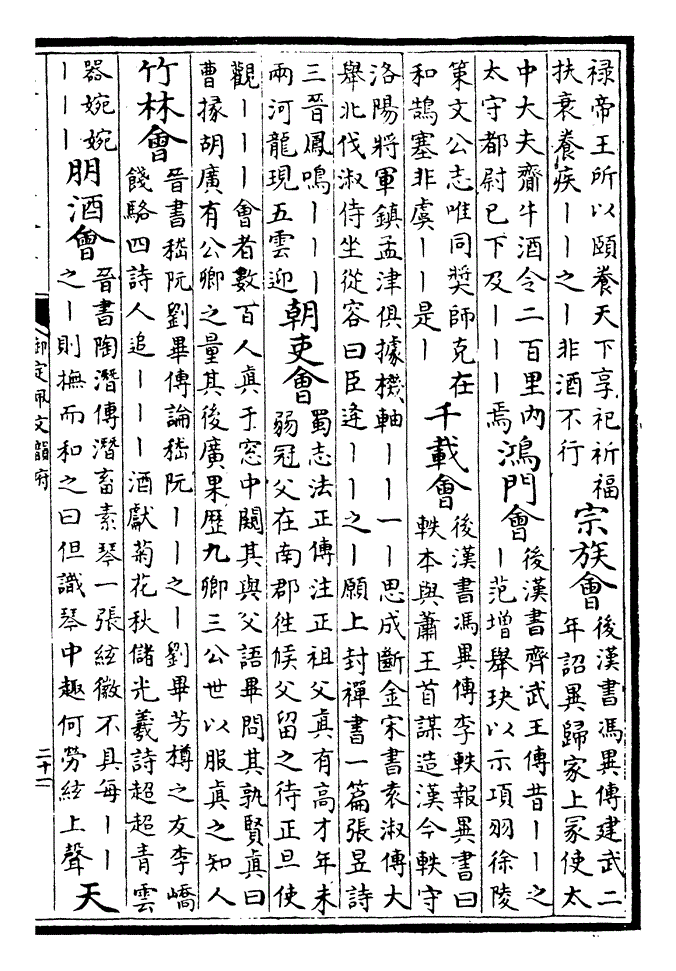 祿帝王所以頤養天下享祀祈福
扶衰養疾丨丨之丨非酒不行
宗族會
後漢書馮異傳建武二
年詔異歸家上冢使太
中大夫齎牛酒令二百里内
太守都尉已下及丨丨丨焉
鴻門會
後漢書齊武王傳昔丨丨之
丨范增舉玦以示項羽徐陵
策文公志唯同奬師克在
和鵲塞非虞丨丨是丨
千載會
後漢書馮異傳李軼報異書曰
軼本與蕭王首謀造漢今軼守
洛陽將軍鎮孟津俱據機軸丨丨一丨思成斷金宋書袁淑傳大
舉北伐淑侍坐從容曰臣逢丨丨之丨願上封禪書一篇張昱詩
三晉鳳鳴丨丨丨
兩河龍現五雲迎
朝吏會
蜀志法正傳注正祖父真有高才年未
弱冠父在南郡徃候父留之待正旦使
觀丨丨丨會者數百人真于窓中闚其與父語畢問其孰賢真曰
曹掾胡廣有公卿之量其後廣果歴九卿三公世以服真之知人
竹林會
晉書嵇阮劉畢傳論嵇阮丨丨之丨劉畢芳樽之友李嶠
餞駱四詩人追丨丨丨酒獻菊花秋儲光羲詩超超青雲
器婉婉
丨丨丨
朋酒會
晉書陶潛傳潛畜素琴一張絃徽不具每丨丨
之丨則撫而和之曰但識琴中趣何勞絃上聲
天
御定佩文韻府
二十一